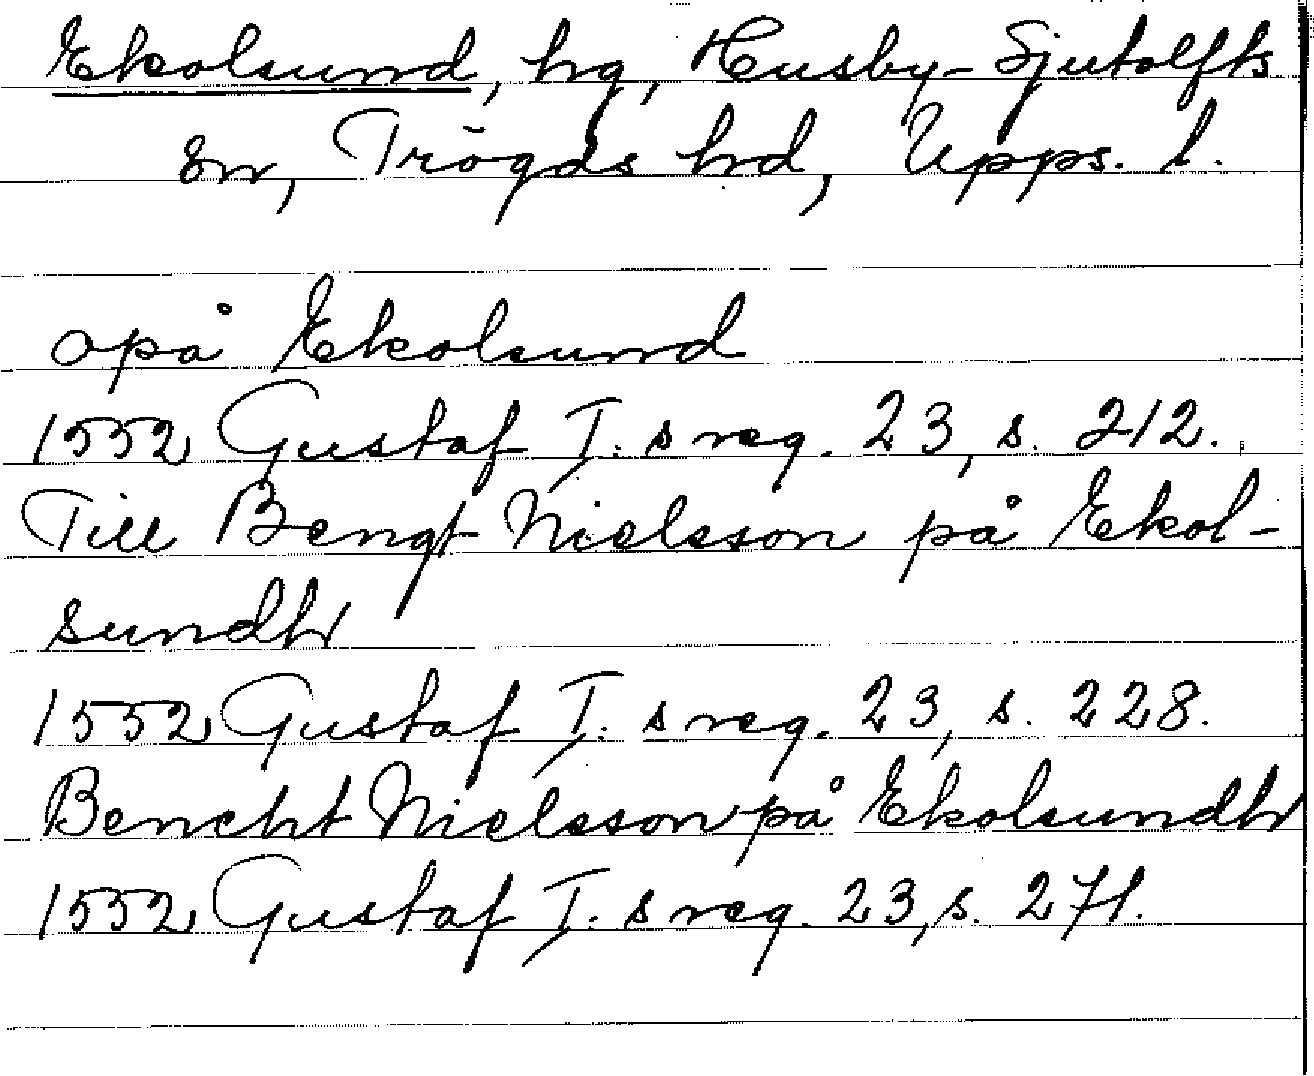 Ekolsund, hg, Husby-Sjutolfts
sn, Trögds hd, Upps. l.
opå Ekolsund
1552 Gustaf I:s reg. 23, s. 212.
Till Bengt Nielsson på Ekol-
sundh
1552 Gustaf I:s reg. 23, s. 228.
Bencht Nielsson på Ekolsundh
1552 Gustaf I:s reg. 23, s. 271.